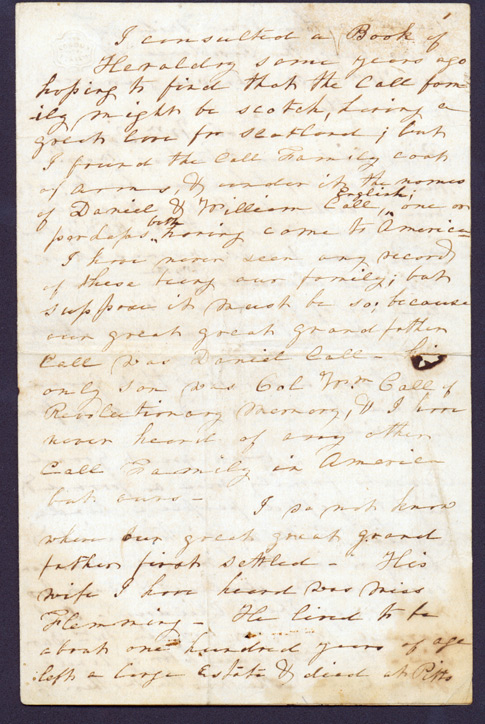 I consulted a Book of
Heraldry some years ago
hoping to find that the Call fam-
ily might be scotch, having a
great love for scotland; but
I found the Call Family coat
of arms, & under it the names
of Daniel & William Call, English; one or
perhaps both having come to America
I have never seen any record
of these being our family; but
suppose it must be so, because
our great great grand father
Call was Daniel Call - His
only son was Col Wm Call of
Revolutionary memory, & I have
never heard of any other
Call Family in America
but ours -
I do not know
where our great great grand
father first settled - His
wife I have heard was Miss
Flemming - He lived to be
about one hundred years of age
left a large Estate & died at Pitts